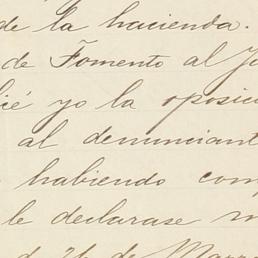 de la hacienda.
de Fomento al
cié yo la oposic
al denunciant
habiendo com
le declarase
de